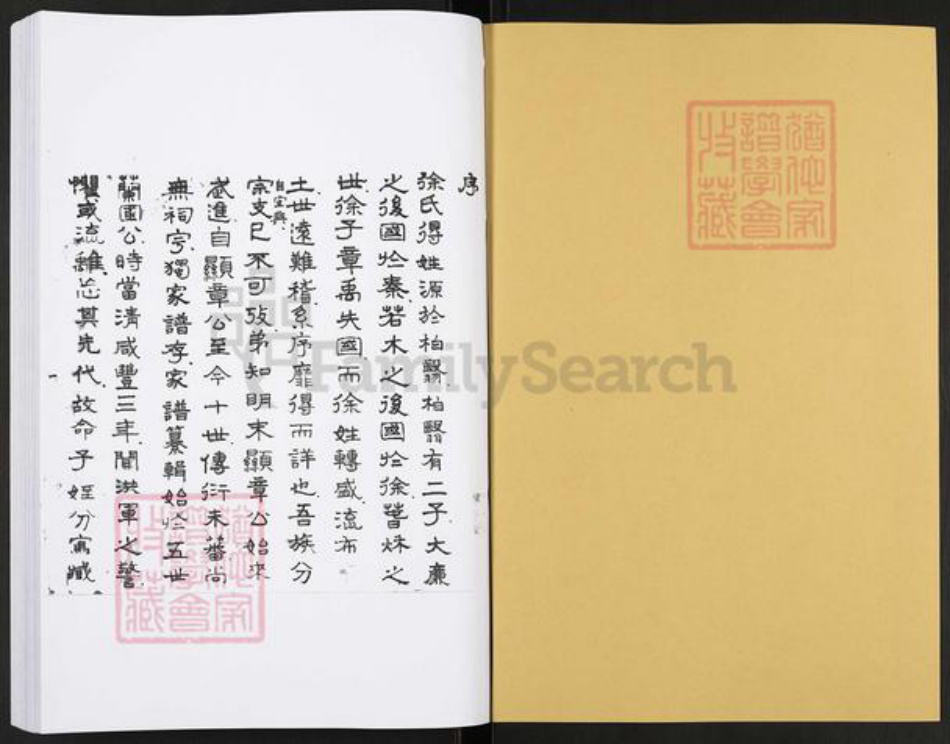 序
徐氏得姓源於柏翳柏翳有二子大廉
之後國於秦若木之後國於徐春秋之
世徐子章禹失國而徐姓轉盛流布
土世遠難稽系序靡得而詳也吾族分
自宜興
宗支已不可攷弟知明末顯章公始來
武進自顯章公至今十世傳衍未蕃尚
無祠宇獨家譜存家譜纂輯始於五世
蘭國公時當清咸豐三年聞洪軍之警
懼或流離忘其先代故命子姪分寫藏
猶他家
譜學會
收藏
猶他家
譜學會
收藏
FamilySearch